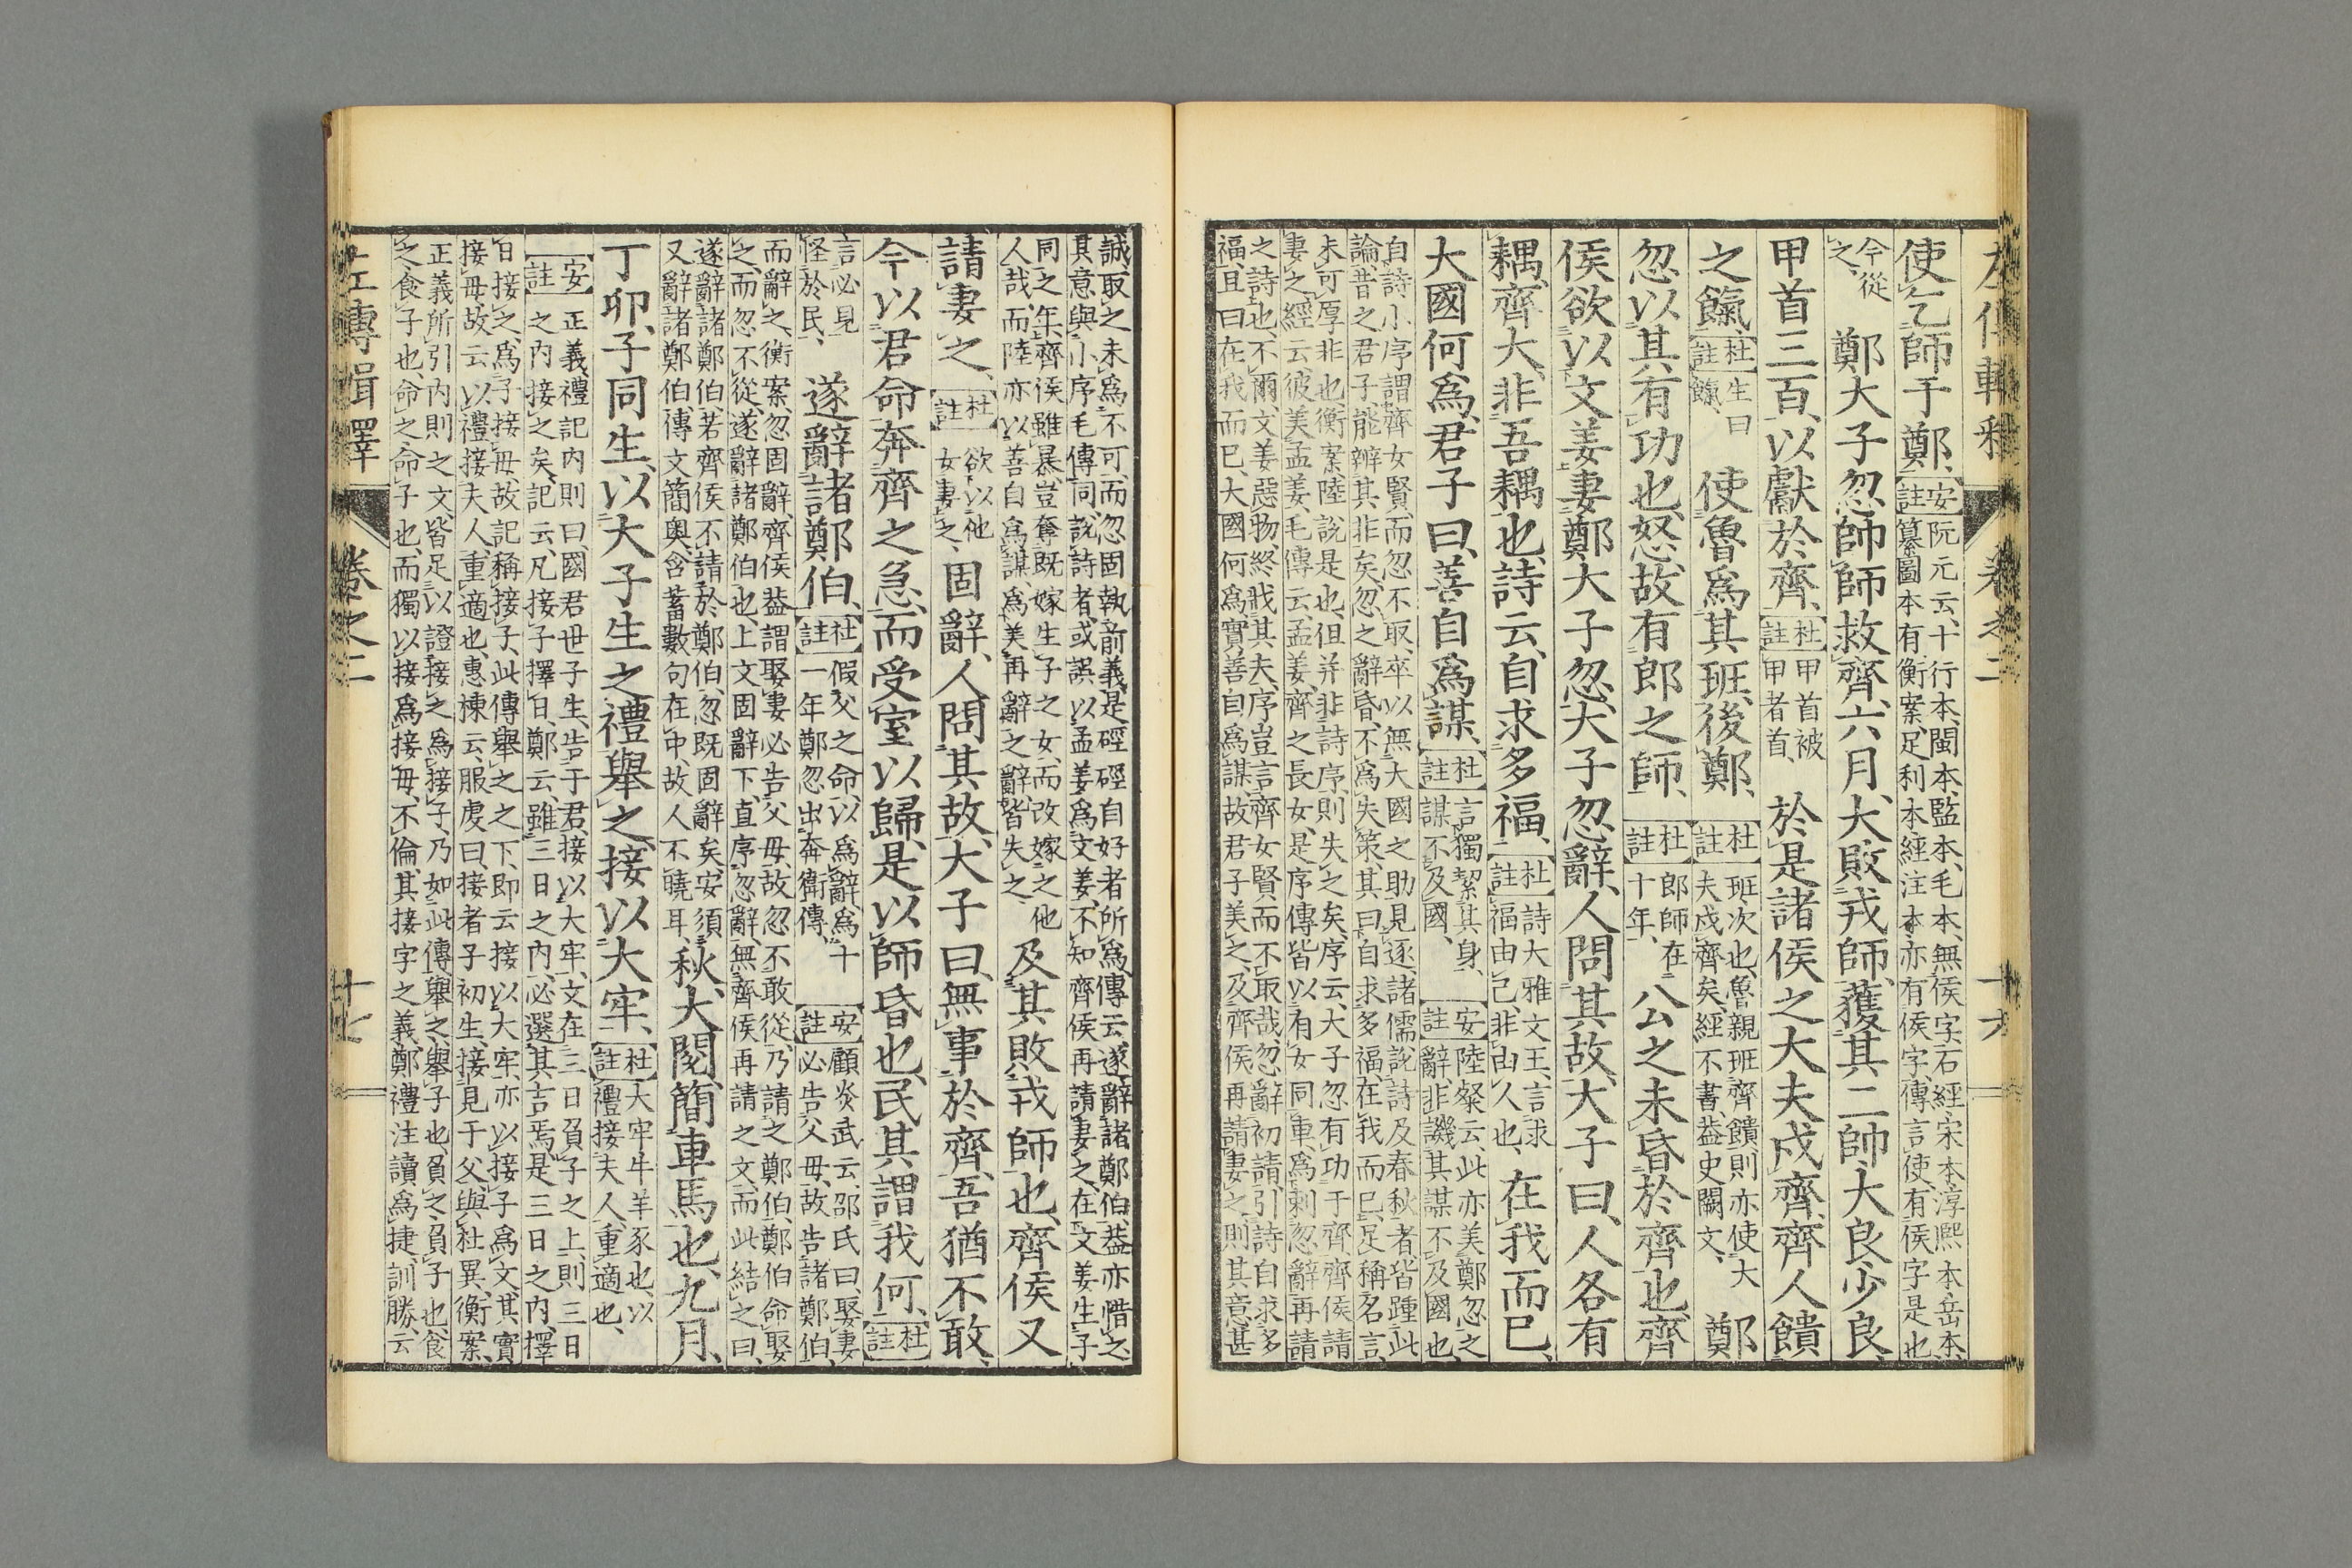 左傳輯釋 卷之二 十六
使乞師于鄭、【安註】阮元云、十行本、閩本、監本、毛本、無侯字、石經宋本淳熙本岳本、
纂圖本有、衡案、足利本經注本亦有侯字、傳言使有侯字是也、
今從之、鄭大子忽帥師救齊、六月、大敗戎師、獲其二帥、大良少良、
甲首三百、以獻於齊、【杜註】甲首被甲者首、於是諸侯之大夫戍齊、齊人饋
之餼、【杜註】生曰餼、使魯爲其班、後鄭、【杜註】班次也、魯親班齊饋、則亦使大夫戍齊矣、經不書、蓋史闕文、鄭
忽以其有功也、怒、故有郎之師、【杜註】郎師在十年、公之未昏於齊也、齊
侯欲以文姜妻鄭大子忽、大子忽辭、人問其故、大子曰、人各有
耦、齊大、非吾耦也、詩云、自求多福、【杜註】詩大雅文王、言求福由己、非由人也、在我而已、
大國何爲、君子曰、善自爲謀、【杜註】言獨絜其身、謀不及國、【安註】陸粲云、此亦美鄭忽之辭、非譏其謀不及國也、
自詩小序謂齊女賢而忽不取、卒以無大國之助見逐、諸儒說詩及春秋者、皆踵此
論、昔之君子、能辨其非矣、忽之辭昏、不爲失策、其曰自求多福、在我而已、足稱名言、
未可厚非也、衡案、陸說是也、但并非詩序、則失之矣、序云、大子忽有功于齊、齊侯請
妻之、經云、彼美孟姜、毛傳云、孟姜、齊之長女、是序傳皆以有女同車、爲刺忽辭再請
之詩也、不爾、文姜惡物、終戕其夫、序豈言齊女賢而不取哉、忽辭初請、引詩自求多
福、且曰、在我而已、大國何爲、實善自爲謀、故君子美之、及齊侯再請妻之、則其意甚
誠、取之未爲不可、而忽固執前義、是硜硜自好者所爲、傳云、遂辭諸鄭伯、蓋亦惜之、
其意與小序毛傳同、說詩者、或誤以孟姜爲文姜、不知齊侯再請妻之、在文姜生子
同之年、齊侯雖暴、豈奪既嫁生子之女、而改嫁之他
人哉、而陸亦以善自爲謀、爲美再辭之辭、皆失之、及其敗戎師也、齊侯又
請妻之、【杜註】欲以他女妻之、固辭、人問其故、大子曰、無事於齊、吾猶不敢、
今以君命奔齊之急、而受室以歸、是以師昏也、民其謂我何、【杜註】
言必見怪於民、遂辭諸鄭伯、【杜註】假父之命、以爲辭、爲十一年鄭忽出奔衛傳、【安註】顧炎武云、邵氏曰、娶妻必告父母、故告諸鄭伯、
而辭之、衡案、忽固辭、齊侯蓋謂娶妻必告父母、故忽不敢從、乃請之鄭伯、鄭伯命娶
之、而忽不從、遂辭諸鄭伯也、上文固辭下、直序忽辭、無齊侯再請之文、而此結之曰、
遂辭諸鄭伯、若齊侯不請於鄭伯、忽既固辭矣、安須
又辭諸鄭伯、傳文簡奧、含蓄數句在中、故人不曉耳、秋、大閱、簡車馬也、九月、
丁卯、子同生、以大子生之禮舉之、接以大牢、【杜註】大牢、牛羊豕也、以禮接夫人、重適也、
【安註】正義、禮記内則曰、國君世子生、告于君、接以大牢、文在三日負子之上、則三日
之内接之矣、記云、凡接子擇日、鄭云、雖三日之内、必選其吉焉、是三日之内、擇
日接之、爲子接母、故記稱接子、此傳舉之之下、即云接以大牢、亦以接子爲文、其實
接母、故云以禮接夫人、重適也、惠棟云、服虔曰、接者子初生、接見于父、與杜異、衡案、
正義所引内則之文、皆足以證接之爲接子、乃如此傳舉之、舉子也、負之、負子也、食
之、食子也、命之、命子也、而獨以接爲接母、不倫、其接字之義、鄭禮注讀爲捷、訓勝、云
左傳輯釋 卷之二 十七